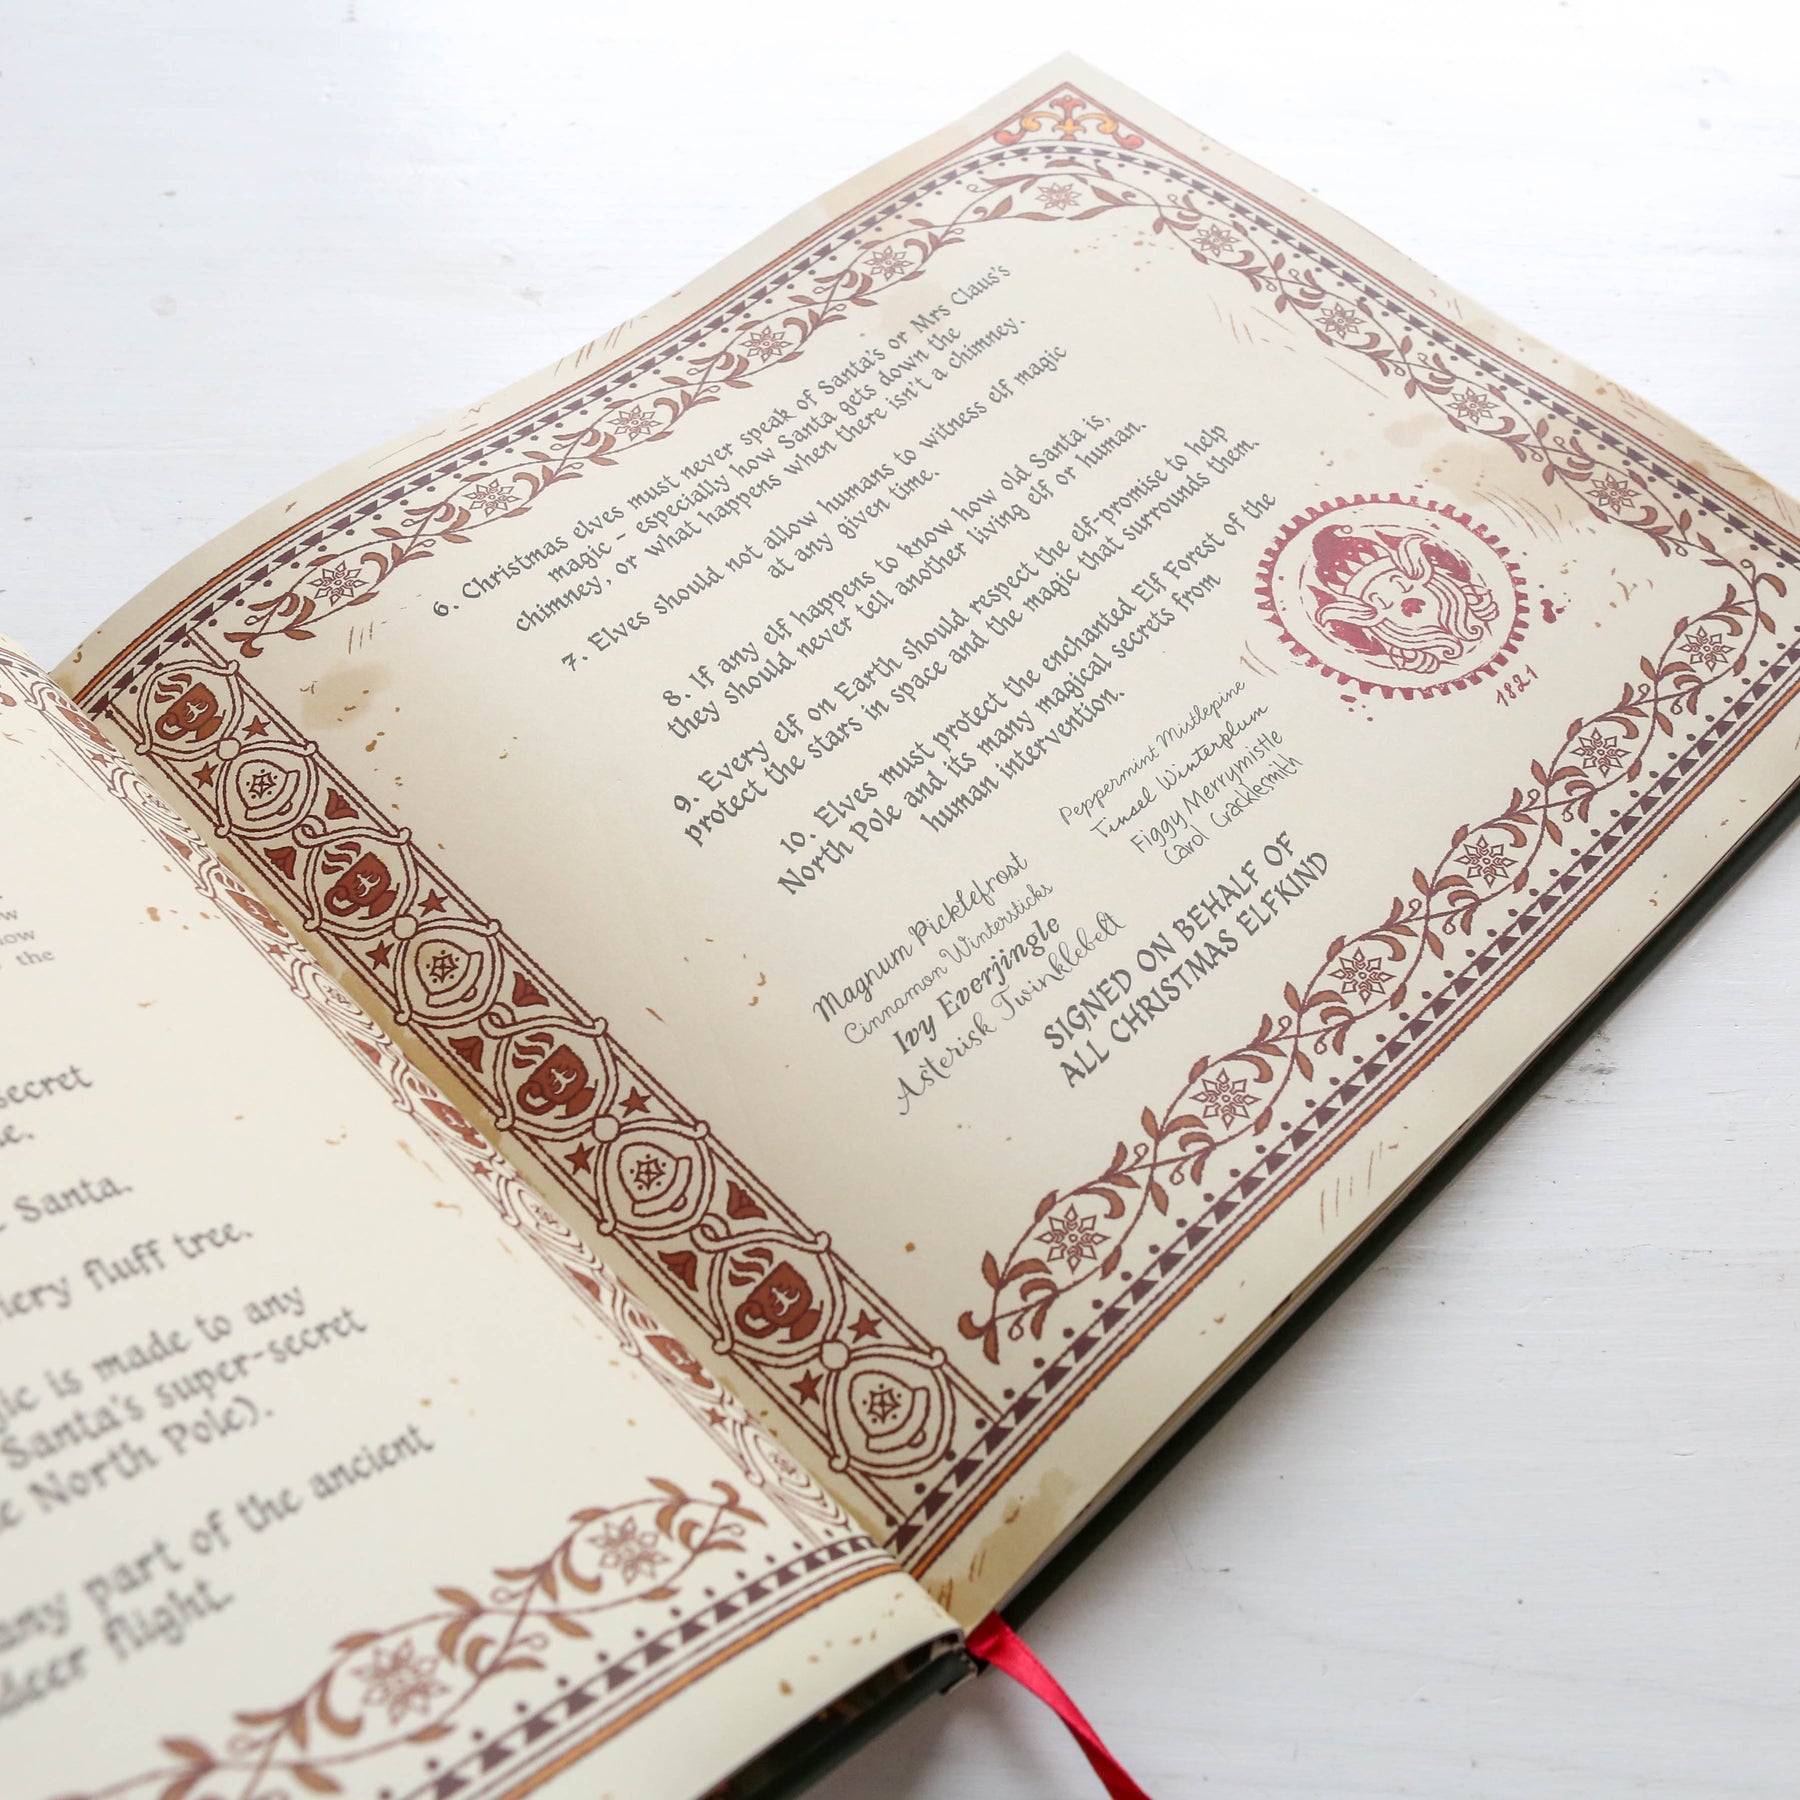 ow
how
the
secret
Santa.
fluff tree.
is made to any
Santa's super-secret
North Pole).
any part of the ancient
flight.
6. Christmas elves must never speak of Santa's or Mrs Claus's
magic - especially how Santa gets down the
chimney, or what happens when there isn't a chimney.
7. Elves should not allow humans to witness elf magic
at any given time.
8. If any elf happens to know how old Santa is,
they should never tell another living elf or human.
9. Every elf on Earth should respect the elf-promise to help
protect the stars in space and the magic that surrounds them.
10. Elves must protect the enchanted Elf Forest of the
North Pole and its many magical secrets from
human intervention.
Magnum Picklefrost
Cinnamon Wintersticks
Ivy Everjingle
Asterisk Twinklebelt
Peppermint Mistlepine
Tinsel Winterplum
Figgy Merrymistle
Carol Cracklesmith
SIGNED ON BEHALF OF
ALL CHRISTMAS ELFKIND
1821